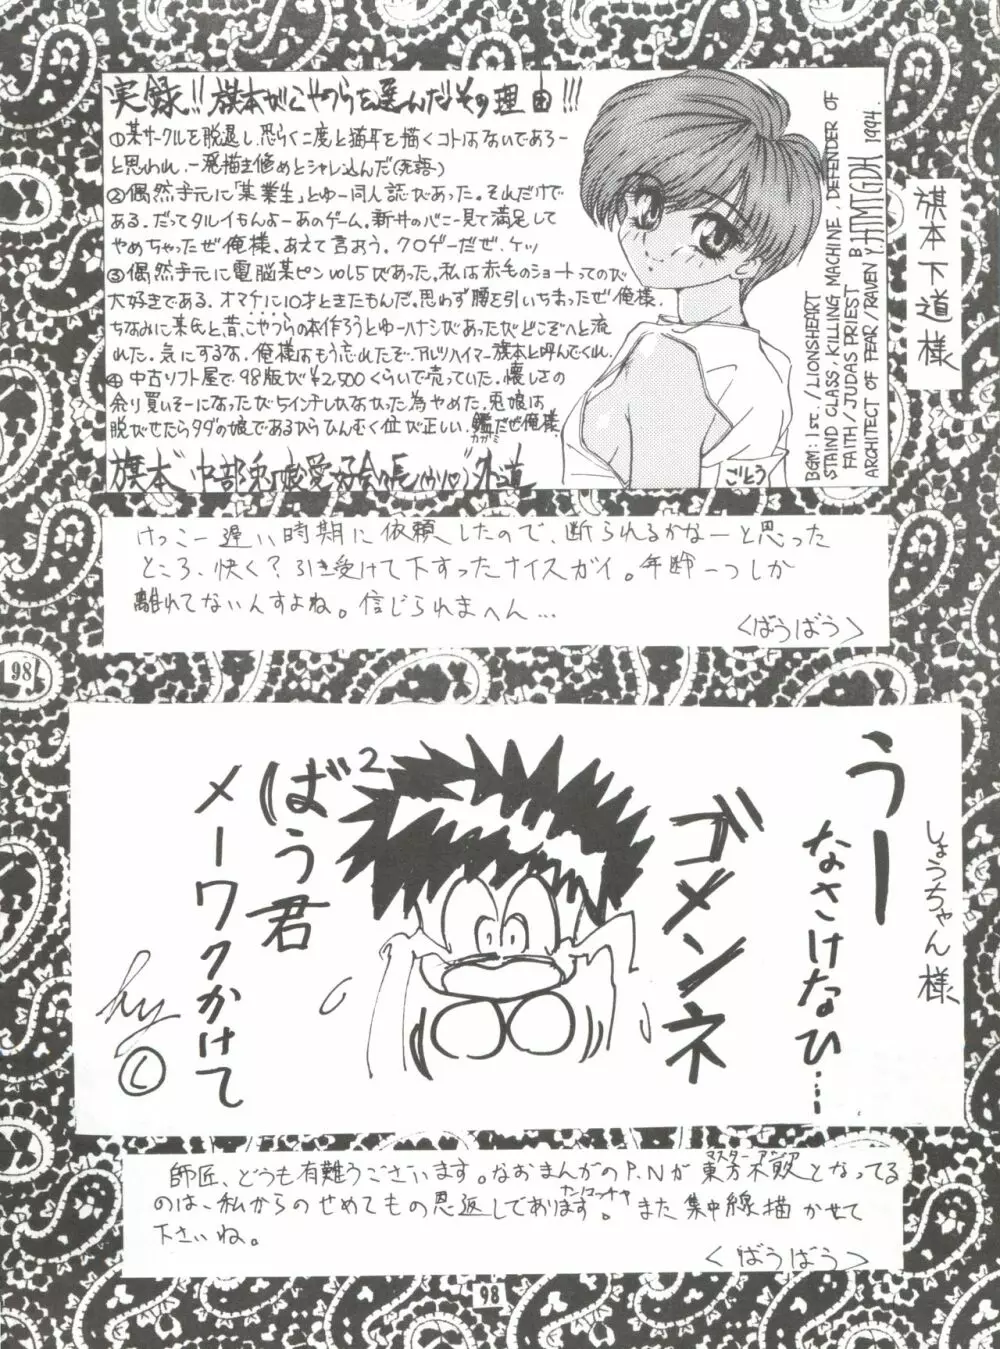 旗本下道様
実録!!旗本がこやつらを選んだその理由!!!
①某サークルを脱退し、恐らく二度と猫耳を描くコトはないであろー
と思われ、一発描き修めとシャレ込んだ(死語)
②偶然手元に「某業生」とゆー同人誌があった。それだけで
ある。だってタルイもんよーあのゲーム。新井のバニー見て満足して
やめちゃったぜ俺様、あえて言おう。クロゲーだぜ、ケッ
③偶然手元に電脳某ピンvol5があった。私は赤毛のショートってのが
大好きである。オマケに10才ときたもんだ。思わず腰を引いちまったぜ俺様。
ちなみに某氏と昔、こやつらの本作ろうとゆーハナシがあったがどこぞへと流
れた。気にするな、俺様はもう忘れたぞ。アルツハイマー旗本と呼んでくれ。
④中古ソフト屋で98版が¥2,500くらいで売っていた。懐しさの
余り買いそーになったが5インチしかなかった為やめた。兎娘は
脱がせたらタダの娘であるからひんむく位が正しい。鑑だぜ俺様
カガミ
旗本 外道
ごとう
BGM:1st./LIONSHEART
STAND CLASS KILLING MACHINE DEFENDER OF
FAITH/JUDAS PRIEST
ARCHITECT OF FEAR/RAVEN
1994.
けっこー遅い時期に依頼したので、断られるかなーと思った
ところ、快く?引き受けて下すったナイスガイ。年齢一つしか
離れてないんすよね。信じられまへん…
<ばうばう>
98
しょうちゃん様
うー
なさけなひ…
ゴメンネ
ばう²君
メーワクかけて
hy
©
師匠、どうも有難うございます。なおまんがのP.Nが東方不敗となってる
マスターアジア
のは、私からのせめてもの恩返しであります。また集中線描かせて
ナンコッチャ
下さいね。
<ばうばう>
98